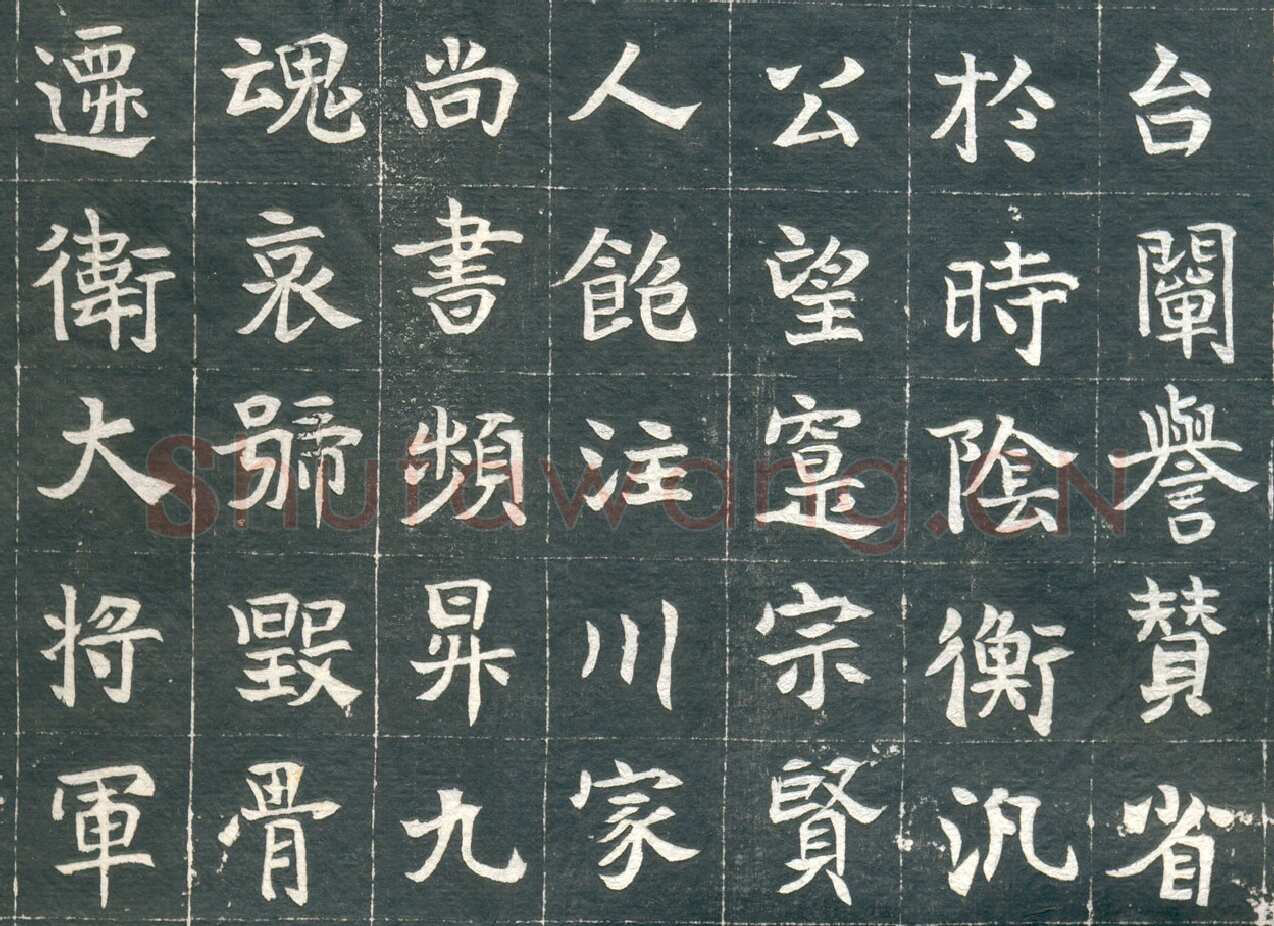 台闡譽贊省
於時陰衡汎
公望寔宗賢
人飽注川家
尚書頻昇九
魂哀號毀骨
遷衛大將軍
Shufawang.CN